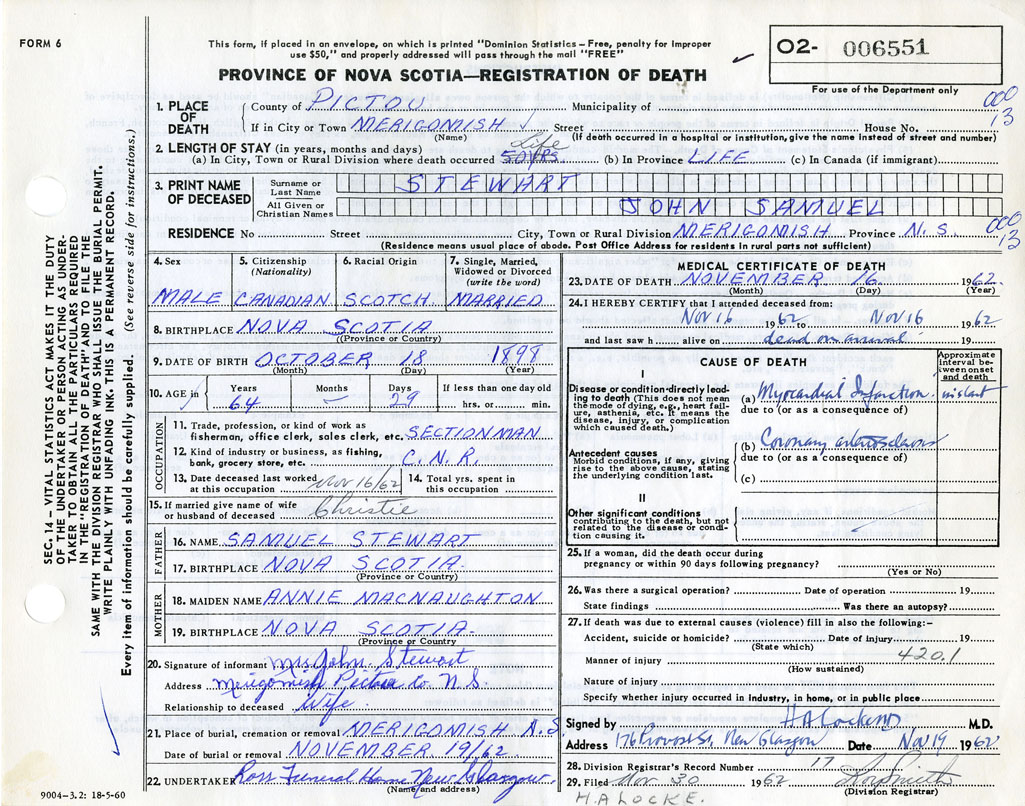 FORM 6
This form, if placed in an envelope, on which is printed "Dominion Statistics – Free, penalty for improper
use $50," and properly addressed will pass through the mail "FREE"
O2- 006551
For use of the Department only
PROVINCE OF NOVA SCOTIA—REGISTRATION OF DEATH
SEC. 14 – VITAL STATISTICS ACT MAKES IT THE DUTY
OF THE UNDERTAKER OR PERSON ACTING AS UNDER-
TAKER TO OBTAIN ALL THE PARTICULARS REQUIRED
IN THE "REGISTRATION OF DEATH" AND TO FILE THE
SAME WITH THE DIVISION REGISTRAR WHO SHALL ISSUE THE BURIAL PERMIT.
WRITE PLAINLY WITH UNFADING INK–THIS IS A PERMANENT RECORD.
Every item of information should be carefully supplied. (See reverse side for instructions.)
1. PLACE OF DEATH
County of PICTOU Municipality of
000
13
If in City or Town MERIGOMISH Street House No.
(Name) (If death occurred in a hospital or institution, give the name instead of street and number)
2. LENGTH OF STAY (in years, months and days)
life
(a) In City, Town or Rural Division where death occurred 50YRS. (b) In Province LIFE (c) In Canada (if immigrant)
3. PRINT NAME OF DECEASED
Surname or Last Name STEWART
All Given or Christian Names JOHN SAMUEL
RESIDENCE No Street City, Town or Rural Division MERIGOMISH Province N. S.
000
13
(Residence means usual place of abode. Post Office Address for residents in rural parts not sufficient)
4. Sex
MALE
5. Citizenship (Nationality)
CANADIAN
6. Racial Origin
SCOTCH
7. Single, Married, Widowed or Divorced (write the word)
MARRIED
8. BIRTHPLACE NOVA SCOTIA
(Province or Country)
9. DATE OF BIRTH OCTOBER 18 1898
(Month) (Day) (Year)
10. AGE in Years Months Days If less than one day old
64 — 29 hrs. or min.
OCCUPATION
11. Trade, profession, or kind of work as
fisherman, office clerk, sales clerk, etc. SECTIONMAN
12. Kind of industry or business, as fishing,
bank, grocery store, etc. C. N. R.
13. Date deceased last worked at this occupation Nov 16/62
14. Total yrs. spent in this occupation
15. If married give name of wife
or husband of deceased Christie
FATHER
16. NAME SAMUEL STEWART
17. BIRTHPLACE NOVA SCOTIA.
(Province or Country)
MOTHER
18. MAIDEN NAME ANNIE MACNAUGHTON
19. BIRTHPLACE NOVA SCOTIA.
(Province or Country)
20. Signature of informant Mrs John Stewart
Address Merigomish Pictou co N. S.
Relationship to deceased Wife.
21. Place of burial, cremation or removal MERIGOMISH N.S.
Date of burial or removal NOVEMBER 19/62.
22. UNDERTAKER Ross Funeral Home New Glasgow.
(Name and address)
9004-3.2: 18-5-60
MEDICAL CERTIFICATE OF DEATH
23. DATE OF DEATH NOVEMBER 16. 1962.
(Month) (Day) (Year)
24. I HEREBY CERTIFY that I attended deceased from:
Nov 16 1962 to Nov 16 1962
and last saw h alive on dead on arrival 19
CAUSE OF DEATH
Approximate interval between onset and death
I
Disease or condition directly lead-
ing to death (This does not mean
the mode of dying, e.g., heart fail-
ure, asthenia, etc. It means the
disease, injury, or complication
which caused death.)
(a) Myocardial Infarction. instant
due to (or as a consequence of)
Antecedent causes
Morbid conditions, if any, giving
rise to the above cause, stating
the underlying condition last.
(b) Coronary arteriosclerosis
due to (or as a consequence of)
(c)
II
Other significant conditions
contributing to the death, but not
related to the disease or condi-
tion causing it.
25. If a woman, did the death occur during
pregnancy or within 90 days following pregnancy?
(Yes or No)
26. Was there a surgical operation? Date of operation 19
State findings Was there an autopsy?
27. If death was due to external causes (violence) fill in also the following:–
Accident, suicide or homicide? Date of injury 19
(State which)
420.1
Manner of injury
(How sustained)
Nature of injury
Specify whether injury occurred in industry, in home, or in public place
Signed by H A Locke MD M.D.
Address 176 Provost St, New Glasgow Date Nov 19 1962
28. Division Registrar's Record Number 17
29. Filed Nov 30 1962
(Division Registrar)
H.A LOCKE.